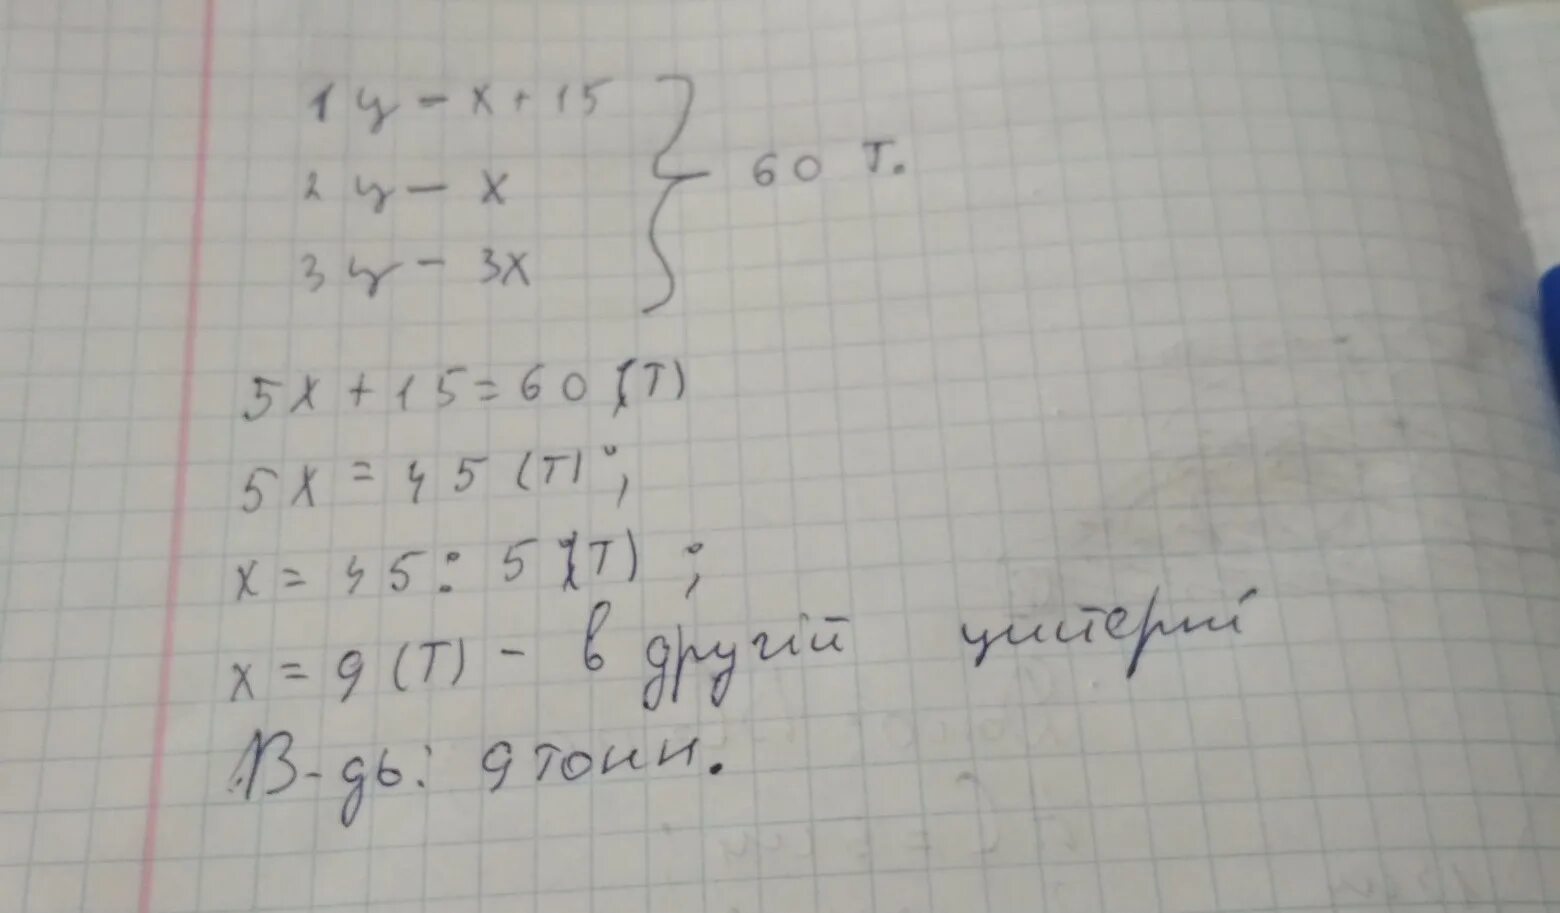 1 ц - x + 15
2 ц - x
3 ц - 3x
60 т.
5x + 15 = 60 (т)
5x = 45 (т);
x = 45 : 5 (т);
x = 9 (т) - в другій цистерні
В-дь: 9 тонн.